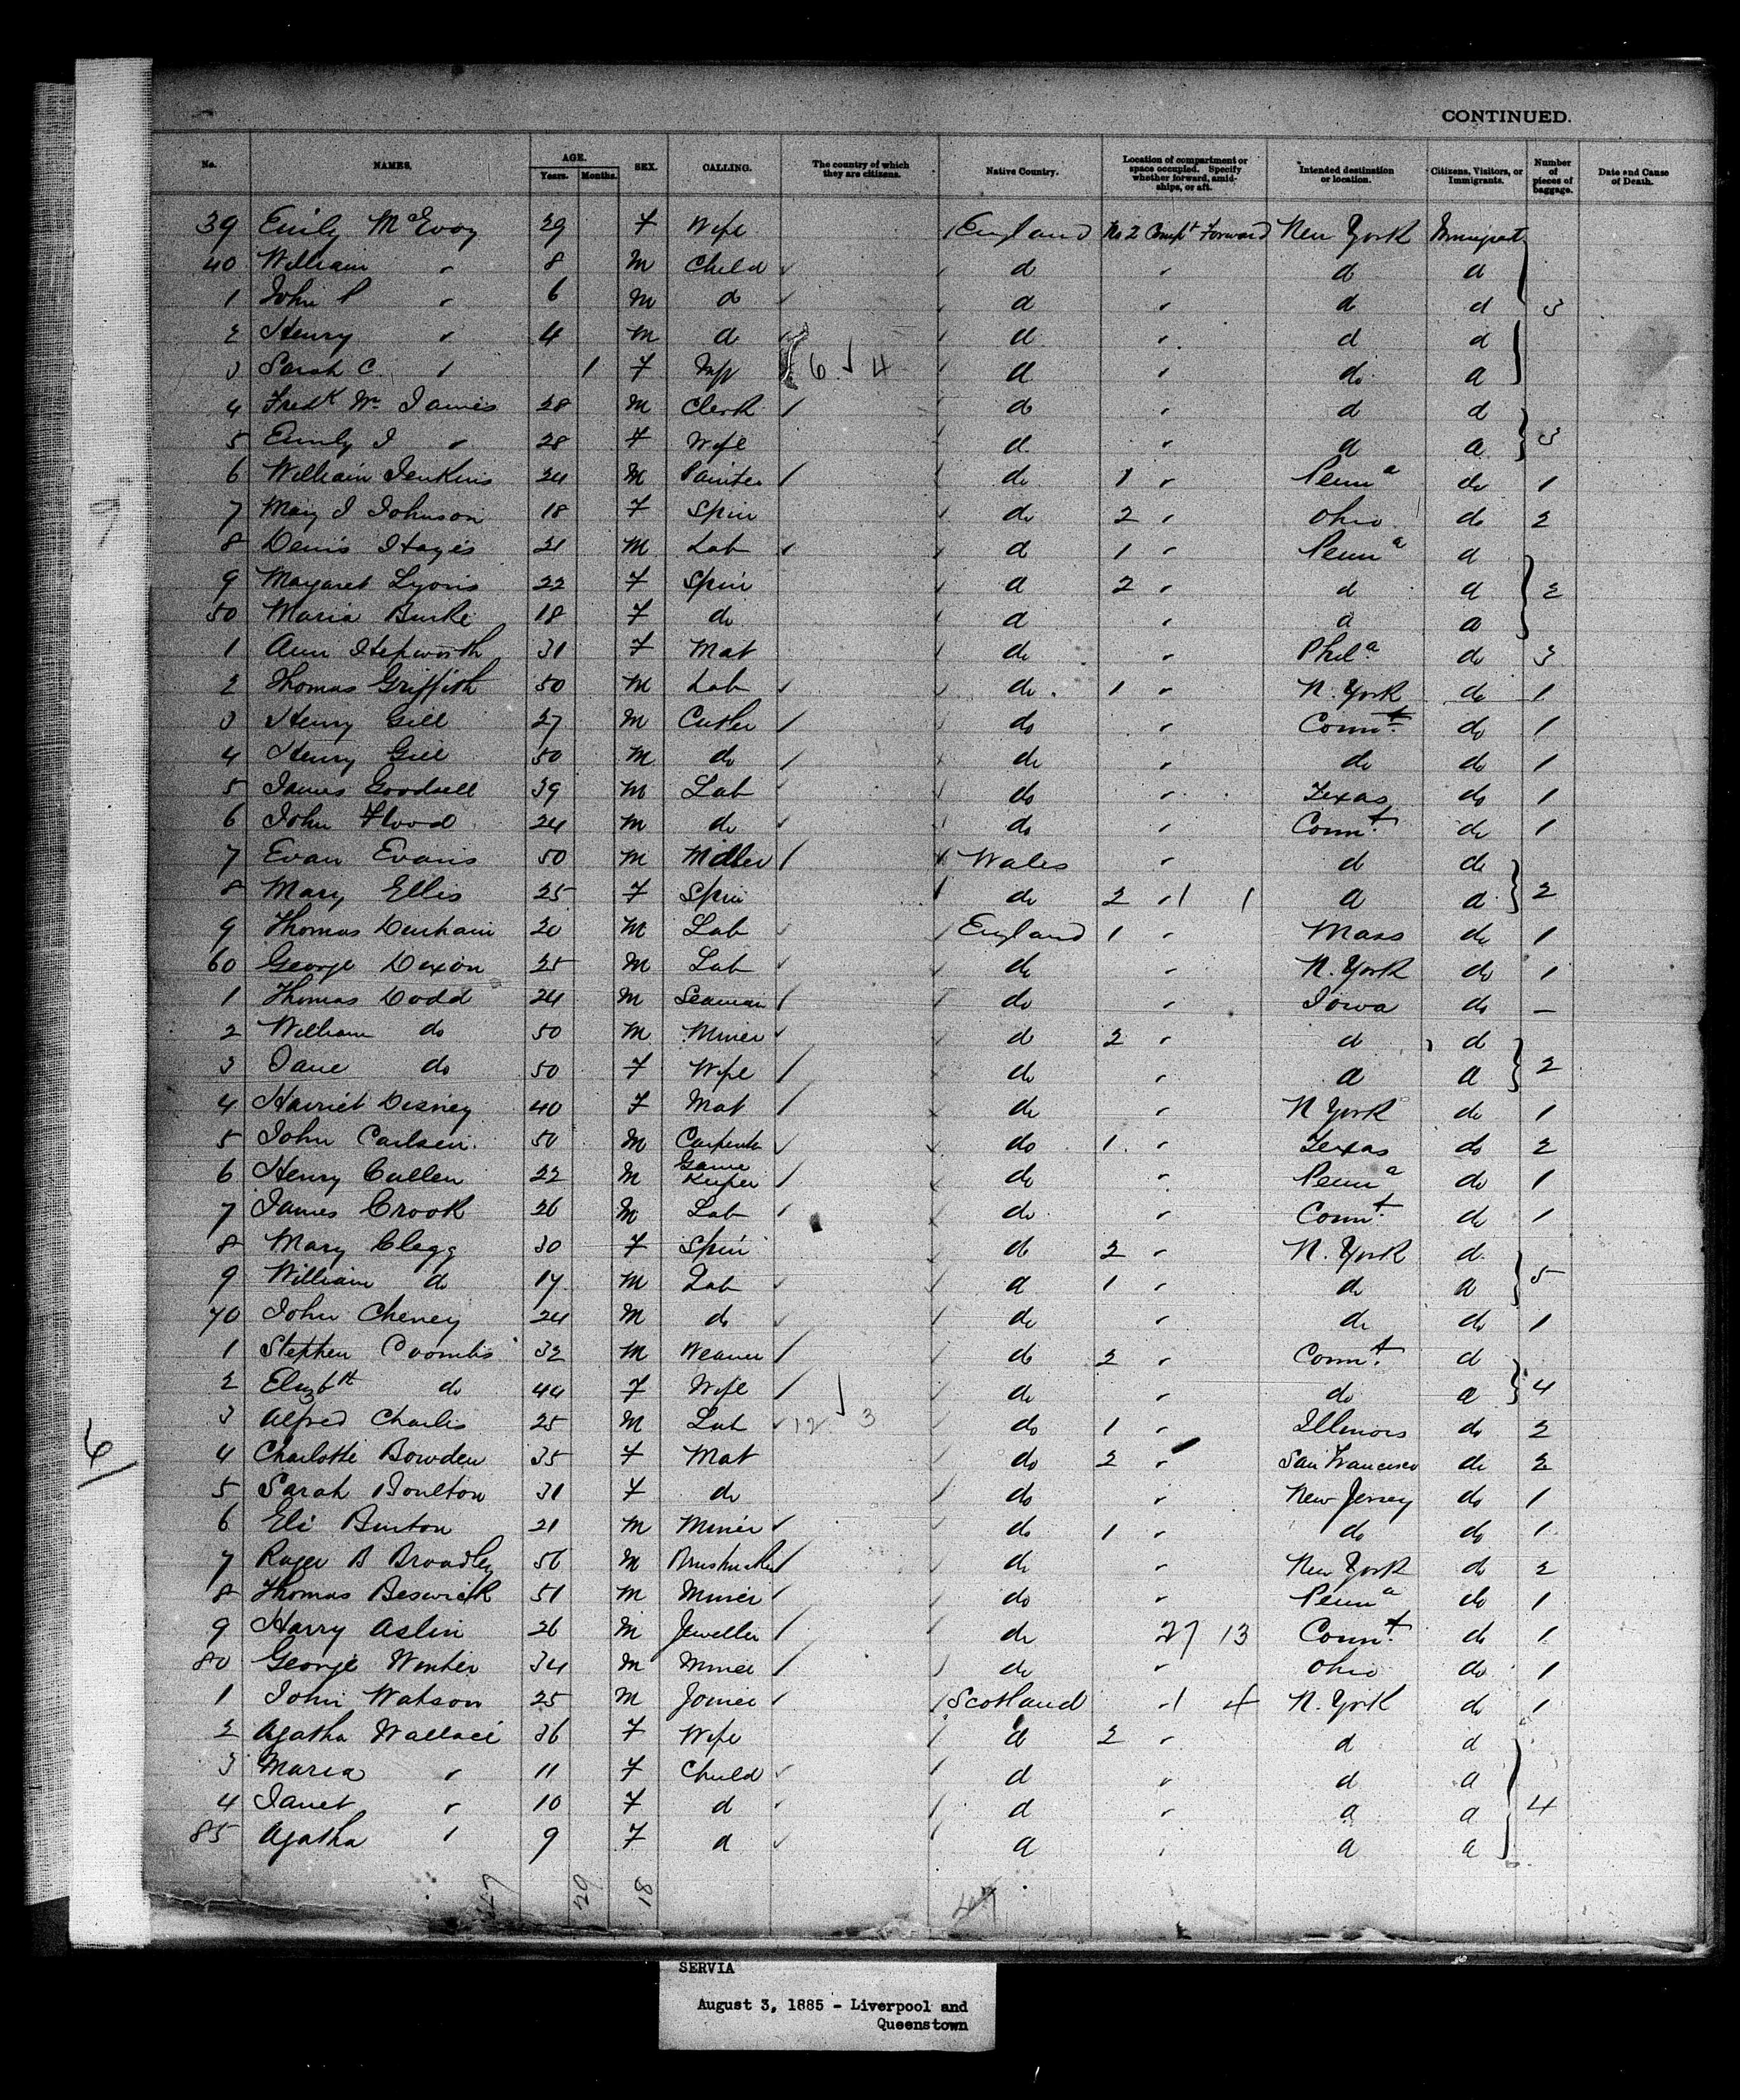 CONTINUED.
No. NAMES. AGE. Years. Months. SEX. CALLING. The country of which they are citizens. Native Country. Location of compartment or space occupied. Specify whether forward, amidships, or aft. Intended destination or location. Citizens, Visitors, or Immigrants. Number of pieces of baggage. Date and Cause of Death.
39 Emily McEvoy 29 F Wife England No 2 Compt Forward New York Immigrant
40 William " 8 M Child d " d d
1 John P " 6 M d d " d d 3
2 Henry " 4 M d d " d d
3 Sarah C. " 1 F Inft 6 4 d " do d
4 Fredk Wm James 28 M Clerk d " d d
5 Emily J " 28 F Wife d " d d 3
6 William Jenkins 24 M Painter do 1 " Penna do 1
7 Mary J Johnson 18 F Spin do 2 " Ohio do 2
8 Denis Hayes 21 M Lab d 1 " Penna d
9 Margaret Lyons 22 F Spin d 2 " d d 2
50 Maria Burke 18 F do d " d d
1 Ann Hepworth 31 F Mat do " Phila do 3
2 Thomas Griffith 50 M Lab do 1 " N. York do 1
3 Henry Gill 27 M Cutler do " Connt. do 1
4 Henry Gill 50 M do do " do do 1
5 James Goodsell 39 M Lab do " Texas do 1
6 John Flood 24 M do do " Connt. do 1
7 Evan Evans 50 M Miller Wales " d do
8 Mary Ellis 25 F Spin do 2 " 1 1 d d 2
9 Thomas Denham 20 M Lab England 1 " Mass do 1
60 George Dixon 25 M Lab do " N. York do 1
1 Thomas Dodd 24 M Seaman do " Iowa do —
2 William do 50 M Miner d 2 " d d
3 Jane do 50 F Wife do " d d 2
4 Harriet Disney 40 F Mat do " N York do 1
5 John Carlsen 50 M Carpenter do 1 " Texas do 2
6 Henry Cullen 22 M Game Keeper do " Penna do 1
7 James Crook 26 M Lab do " Connt. do 1
8 Mary Clegg 30 F Spin do 2 " N. York d
9 William do 17 M Lab d 1 " do d 5
70 John Cheney 24 M do do " do do 1
1 Stephen Coombs 32 M Weaver do 2 " Connt. d
2 Elizbth do 44 F Wife do " do d 4
3 Alfred Charlis 25 M Lab 12 3 do 1 " Illinois do 2
4 Charlotte Bowden 35 F Mat do 2 " San Francisco do 2
5 Sarah Boulton 31 F do do " New Jersey do 1
6 Eli Burton 21 M Miner do 1 " do do 1
7 Roger B Broadley 56 M Brushmaker do " New York do 2
8 Thomas Beswick 51 M Miner do " Penna do 1
9 Harry Aslin 26 M Jeweller do 27 13 Connt. do 1
80 George Winter 34 M Miner do " Ohio do 1
1 John Watson 25 M Joiner Scotland " 1 4 N. York do 1
2 Agatha Wallace 36 F Wife d 2 " d d
3 Maria " 11 F Child d " d d
4 Janet " 10 F d d " d d 4
85 Agatha " 9 F d d " d d
47 29 18
SERVIA
August 3, 1885 - Liverpool and
Queenstown